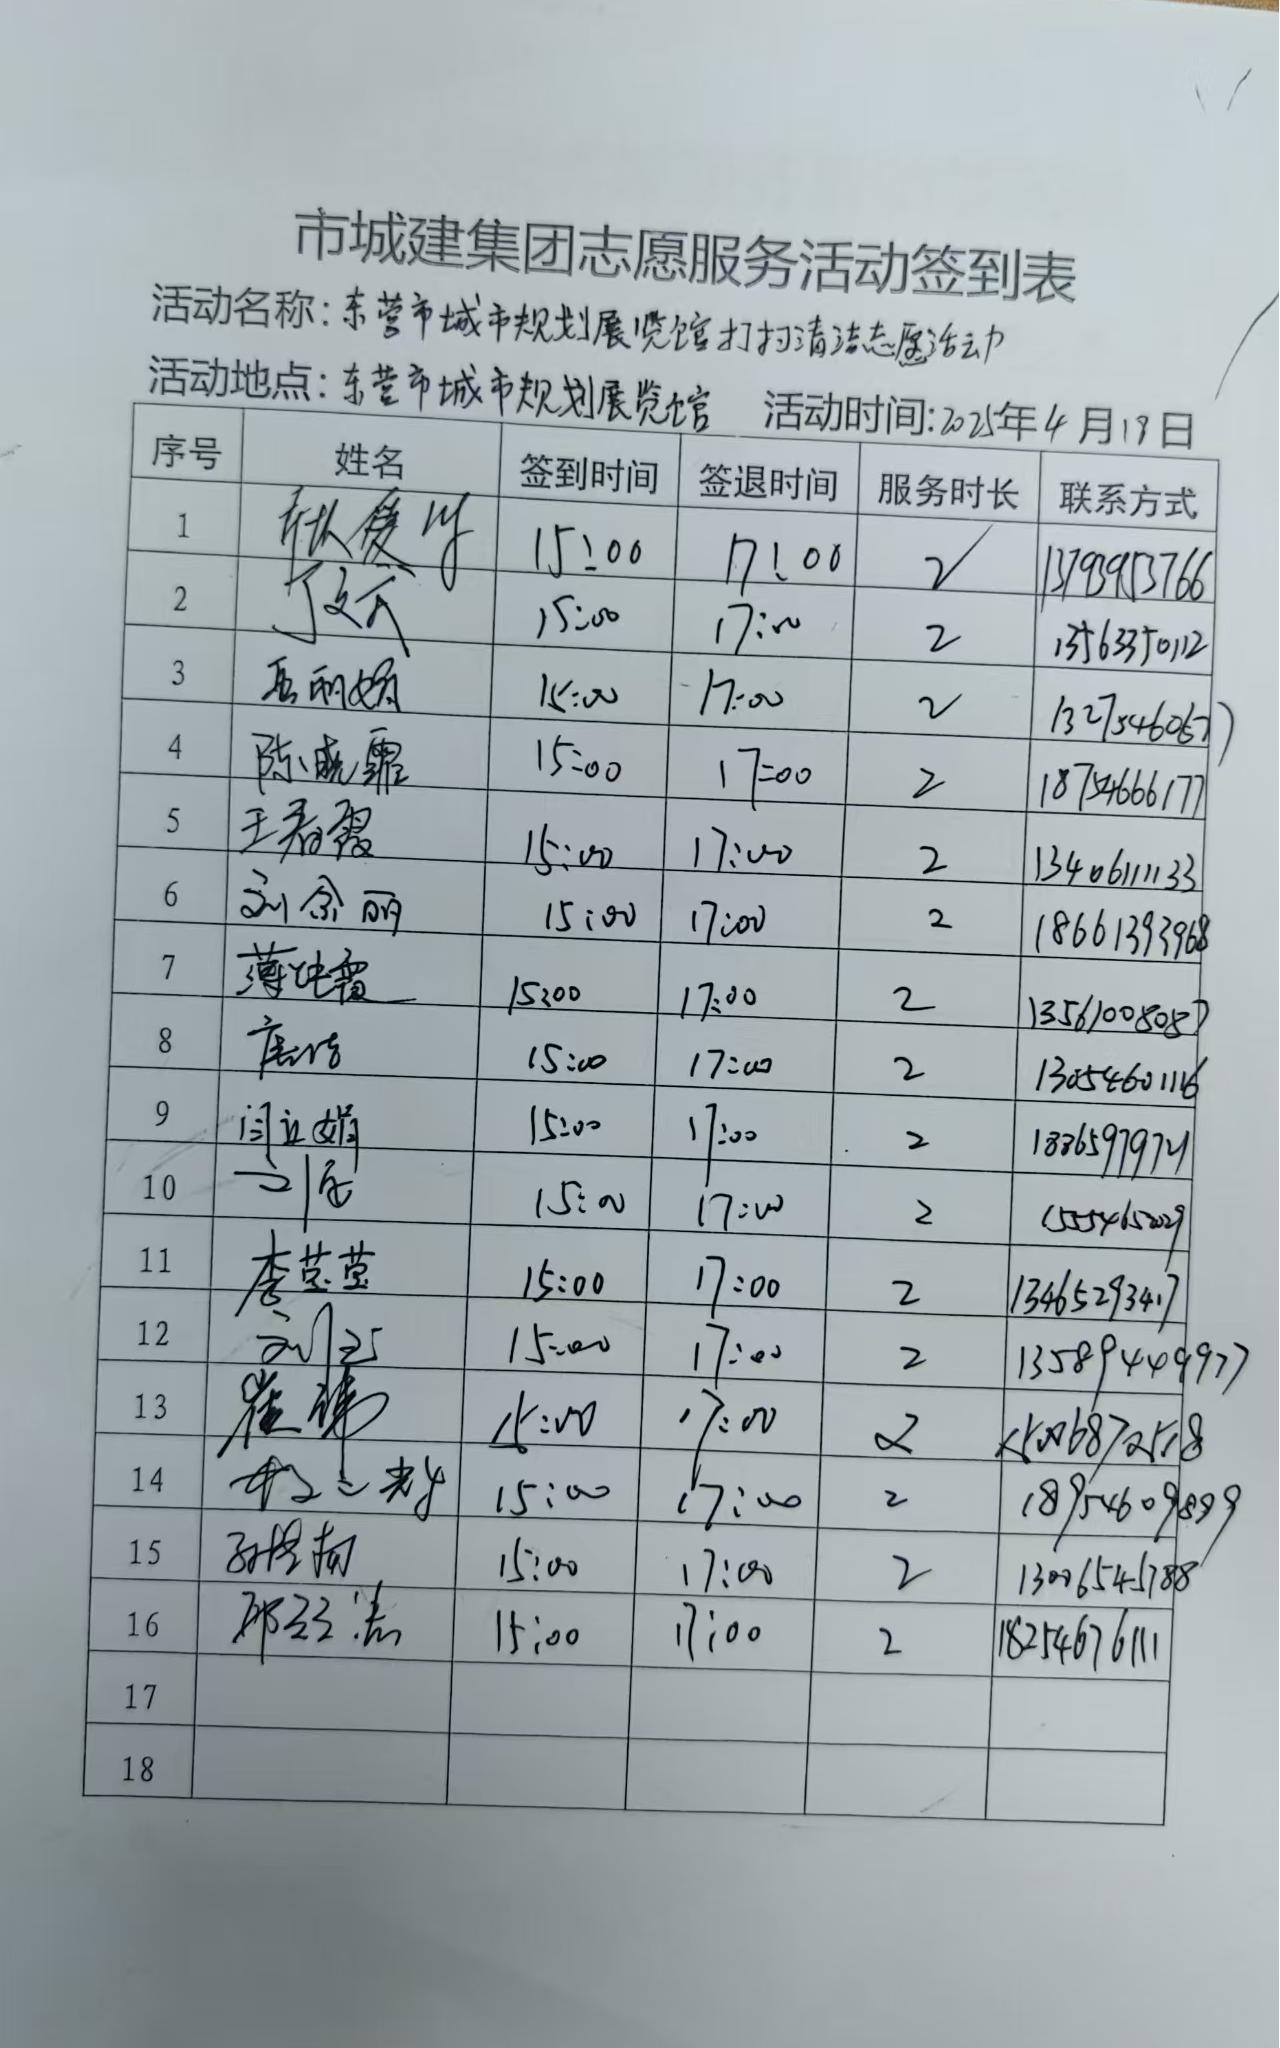 市城建集团志愿服务活动签到表
活动名称:东营市城市规划展览馆打扫清洁志愿活动
活动地点:东营市城市规划展览馆 活动时间:2025年4月19日
序号 姓名 签到时间 签退时间 服务时长 联系方式
1 15:00 17:00 2 13793953766
2 15:00 17:00 2 13563350112
3 15:00 17:00 2 13275460677
4 陈晓霏 15:00 17:00 2 18754666177
5 王春霞 15:00 17:00 2 13406111133
6 刘念丽 15:00 17:00 2 18661393968
7 15:00 17:00 2 13561008087
8 15:00 17:00 2 13054601116
9 闫立娟 15:00 17:00 2 18865979721
10 15:00 17:00 2
11 李莹莹 15:00 17:00 2 13465293417
12 15:00 17:00 2 13589449977
13 15:00 17:00 2
14 15:00 17:00 2 18954609899
15 15:00 17:00 2 13006545788
16 15:00 17:00 2 18254676111
17
18